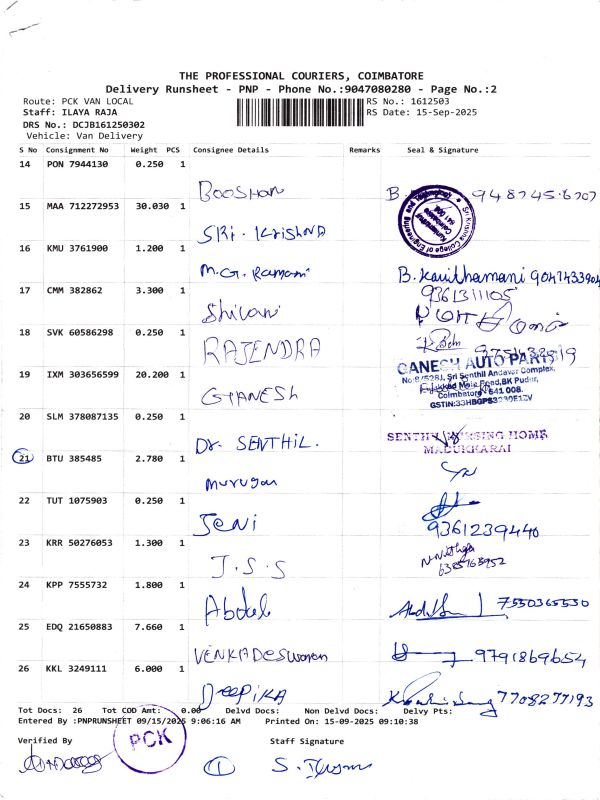 THE PROFESSIONAL COURIERS, COIMBATORE
Delivery Runsheet - PNP - Phone No.:9047080280 - Page No.:2
Route: PCK VAN LOCAL RS No.: 1612503
Staff: ILAYA RAJA RS Date: 15-Sep-2025
DRS No.: DCJB161250302
Vehicle: Van Delivery
S No Consignment No Weight PCS Consignee Details Remarks Seal & Signature
14 PON 7944130 0.250 1
Booshan
15 MAA 712272953 30.030 1
Sri. Krishna
16 KMU 3761900 1.200 1
M.G. Ramani B. Kavithamani 9047433904
17 CMM 382862 3.300 1 9361311105
Shivani
18 SVK 60586298 0.250 1
RAJENDRA
19 IXM 303656599 20.200 1 GANESH AUTO PARTS
No:9/528J, Sri Senthil Andavar Complex,
Road, BK Pudur,
GANESH Coimbatore 641 008.
20 SLM 378087135 0.250 1
Dr. SENTHIL. NURSING HOME
MADUKKARAI
21 BTU 385485 2.780 1
Murugan
22 TUT 1075903 0.250 1
Jeni 9361239440
23 KRR 50276053 1.300 1
J.S.S
24 KPP 7555732 1.800 1
Abdul 7550365530
25 EDQ 21650883 7.660 1
VENKADESwaran 9791869654
26 KKL 3249111 6.000 1
Deepika 7708277193
Tot Docs: 26 Tot COD Amt: 0.00 Delvd Docs: Non Delvd Docs: Delvy Pts:
Entered By :PNPRUNSHEET 09/15/2025 9:06:16 AM Printed On: 15-09-2025 09:10:38
Verified By PCK Staff Signature
1